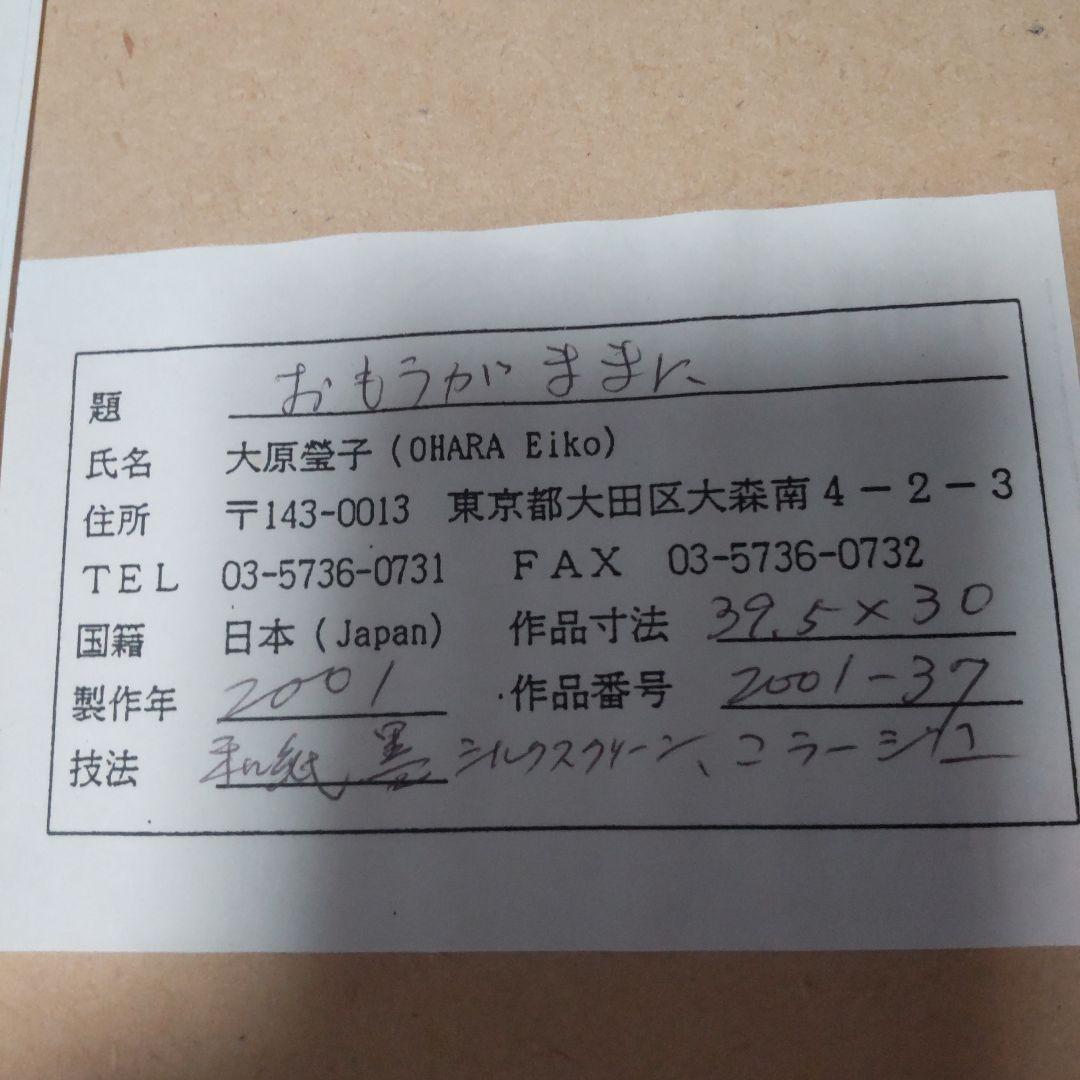 題 おもうがままに
氏名 大原瑩子(OHARA Eiko)
住所 〒143-0013 東京都大田区大森南4-2-3
TEL 03-5736-0731 FAX 03-5736-0732
国籍 日本(Japan) 作品寸法 39.5×30
製作年 2001 作品番号 2001-37
技法 和紙、墨、シルクスクリーン、コラージュ